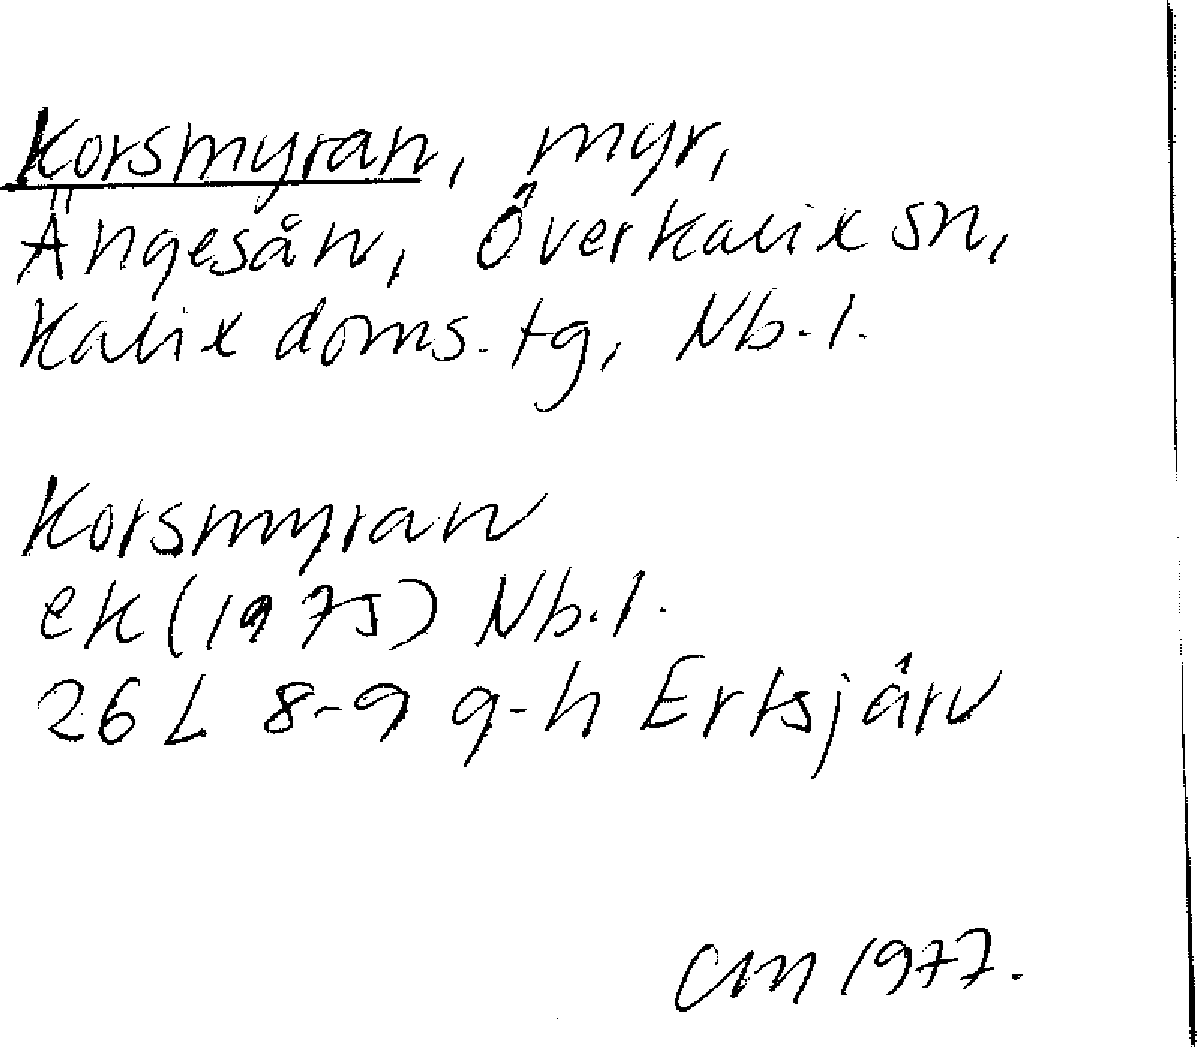 Korsmyran, myr,
Ängesån, Överkalix sn,
Kalix doms. tg, Nb. l.
Korsmyran
ek (1975) Nb. l.
26 L 8-9 g-h Ertsjärv
CM 1977.